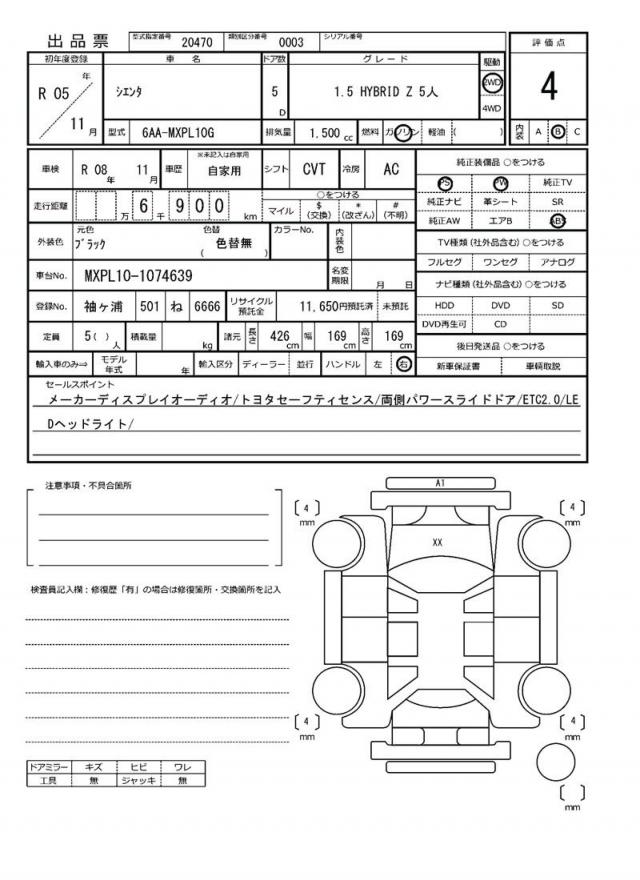 出品票 型式指定番号 20470 類別区分番号 0003 シリアル番号
評価点
4
初年度登録 車名 ドア数 グレード 駆動
R 05 年 11 月
シエンタ 5 D 1.5 HYBRID Z 5人 2WD
4WD
型式 6AA-MXPL10G 排気量 1,500 cc 燃料 ガソリン 軽油 ( ) 内装 A B C
車検 R 08 年 11 月 車歴 ※未記入は自家用 自家用 シフト CVT 冷房 AC
走行距離 万 6 千 9 0 0 km ○をつける
マイル $ (交換) * (改ざん) # (不明)
外装色 元色 ブラック 色替 ( 色替無 ) カラーNo. 内装色
車台No. MXPL10-1074639 名変期限 月 日
登録No. 袖ヶ浦 501 ね 6666 リサイクル預託金 11,650円預託済 未預託
定員 5( ) 人 積載量 kg 諸元 長さ 426 cm 幅 169 cm 高さ 169 cm
輸入車のみ⇒ モデル年式 年 輸入区分 ディーラー 並行 ハンドル 左 右
純正装備品 ○をつける
PS PW 純正TV
純正ナビ 革シート SR
純正AW エアB ABS
TV種類 (社外品含む) ○をつける
フルセグ ワンセグ アナログ
ナビ種類 (社外品含む) ○をつける
HDD DVD SD
DVD再生可 CD
後日発送品 ○をつける
新車保証書 車輌取説
セールスポイント
メーカーディスプレイオーディオ/トヨタセーフティセンス/両側パワースライドドア/ETC2.0/LE
Dヘッドライト/
注意事項・不具合箇所
検査員記入欄：修復歴「有」の場合は修復箇所・交換箇所を記入
ドアミラー キズ ヒビ ワレ
工具 無 ジャッキ 無
A1
XX
4 mm
4 mm
4 mm
4 mm
mm